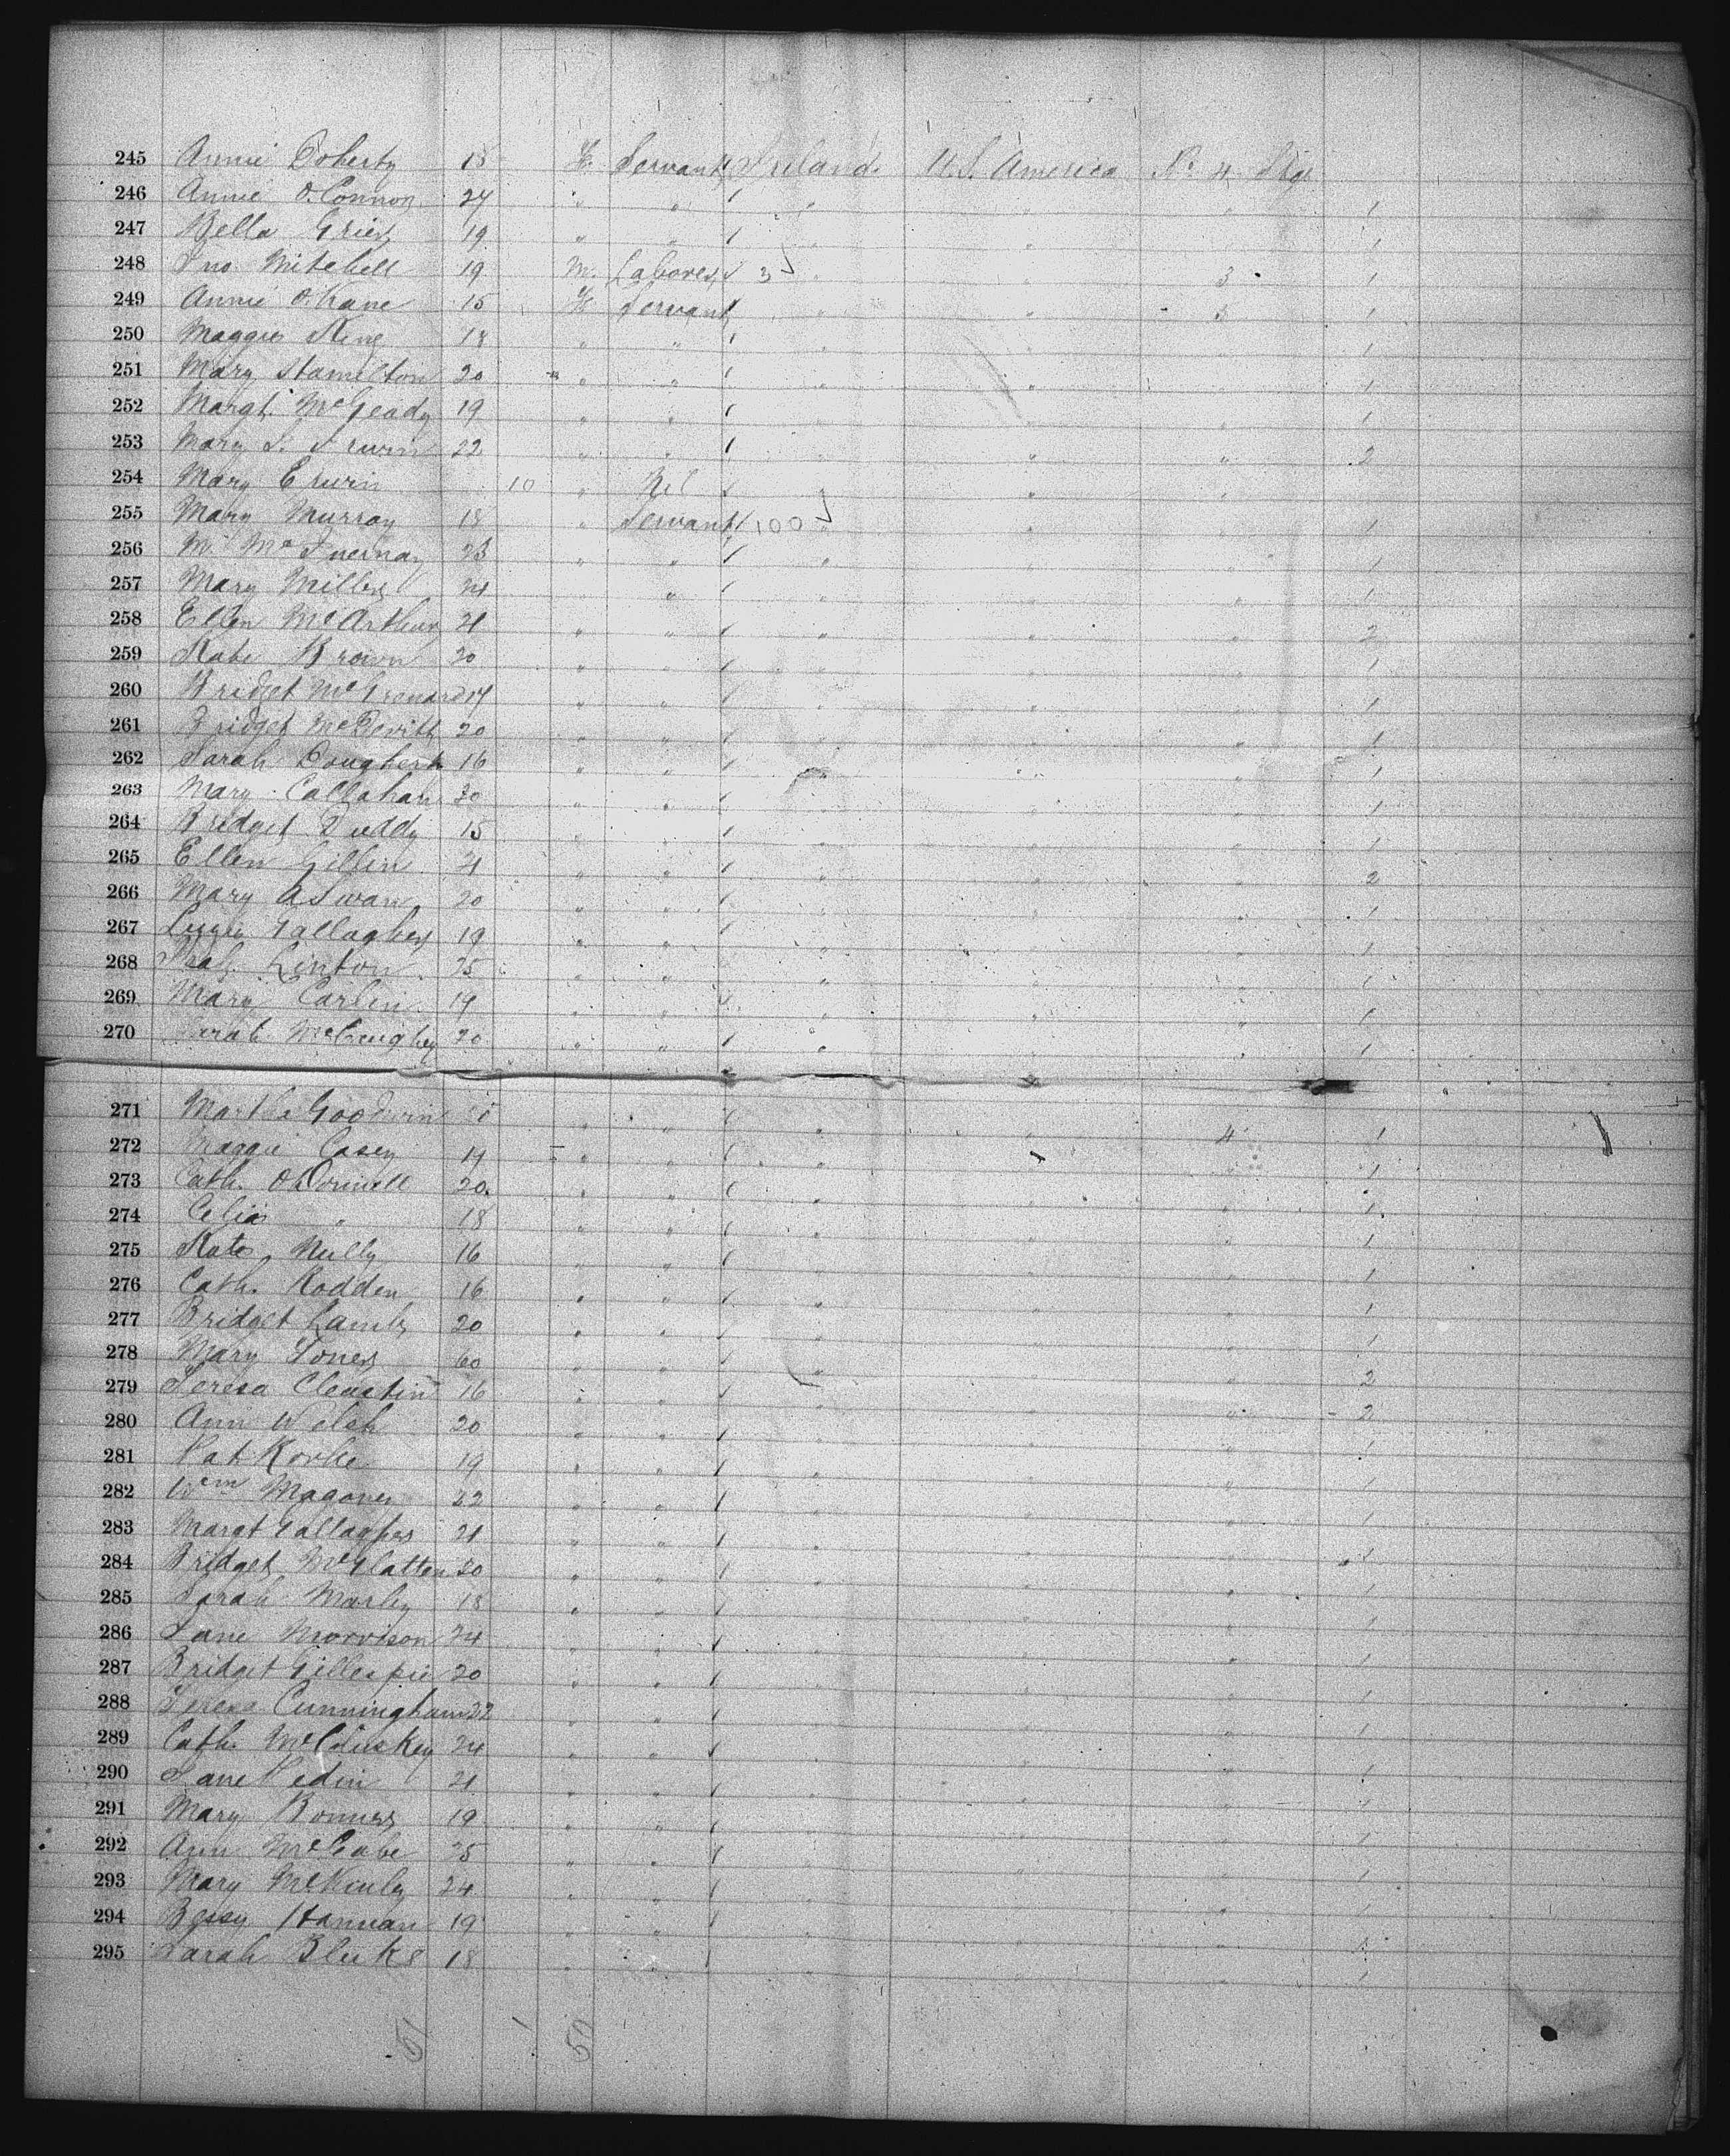 245 Annie Doherty 18 F. Servant Ireland. U.S. America No. 4 Stge
246 Annie O.Connor 24 " " " " " 1
247 Bella Grier 19 " " " " 1
248 Jno. Mitchell 19 M. Laborer 3 " " 3 1
249 Annie O.Kane 15 F Servant " " 1
250 Maggie King 18 " " " " 1
251 Mary Hamilton 20 " " " " 1
252 Margt. McGeady 19 " " " " 1
253 Mary Irwin 22 " " " " " 2
254 Mary Erwin 10 " Nil " " "
255 Mary Murray 18 " Servant 100 " " 1
256 M. 23 " " " " " 1
257 Mary Miller 24 " " " " " 1
258 Ellen McArthur 21 " " " " " 2
259 Kate Brown 20 " " " " " 1
260 Bridget " " " " " 1
261 Bridget McDevitt 20 " " " " " 1
262 Sarah Dougherty 16 " " " " " 1
263 Mary Callahan 20 " " " " " 1
264 Bridget Duddy 15 " " " " " 1
265 Ellen Gillin 21 " " " " " 2
266 Mary A Swan 20 " " " " " 1
267 Gallagher 19 " " " " " 1
268 Linton 25 " " " " " 1
269 Mary Carlin 19 " " " " " 1
270 Sarah McCaughey 20 " " " " " 1
271 Martha Goodwin " " " " 4 1
272 Maggie Casey 19 " " " " " 1
273 Cath. O'Donnell 20 " " " " " 1
274 Celia " 18 " " " " " 1
275 Kate Nully 16 " " " " " 1
276 Cath. Rodden 16 " " " " " 1
277 Bridget Lamb 20 " " " " " 1
278 Mary Jones 60 " " " " " 2
279 Teresa 16 " " " " " 2
280 Ann Welsh 20 " " " " " 1
281 Pat 19 " " " " " 1
282 Wm 22 " " " " " 1
283 Margt Gallagher 21 " " " " " 1
284 Bridget 20 " " " " " 1
285 Sarah Marley 18 " " " " " 1
286 Jane Morrison 24 " " " " " 1
287 Bridget Gillespie 20 " " " " " 1
288 Cunningham 22 " " " " " 1
289 Cath. McCluskey 24 " " " " " 1
290 Jane Pedin 21 " " " " " 1
291 Mary Bonner 19 " " " " " 1
292 Ann McCabe 25 " " " " " 1
293 Mary McKinley 24 " " " " " 1
294 Bessy Hannan 19 " " " " " 1
295 Sarah 18 " " " " " 1
51 1 50